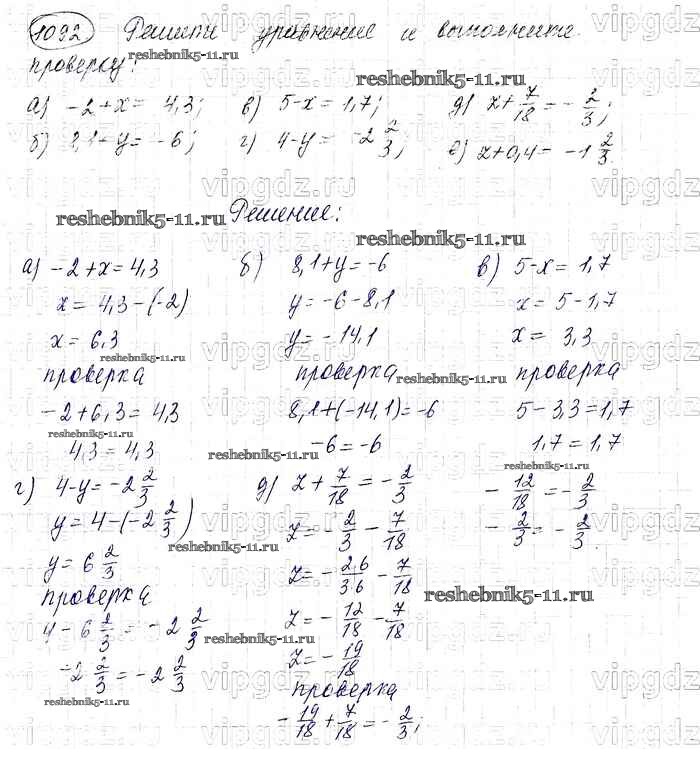 1092 Решите уравнение и выполните
проверку:
а) -2+x = 4,3; в) 5-x = 1,7; д) z+7/18 = -2/3;
б) 8,1+y = -6; г) 4-y = -2 2/3; е) z+0,4 = -1 2/3.
Решение:
а) -2+x = 4,3
x = 4,3-(-2)
x = 6,3
проверка
-2+6,3 = 4,3
4,3 = 4,3
б) 8,1+y = -6
y = -6-8,1
y = -14,1
проверка
8,1+(-14,1) = -6
-6 = -6
в) 5-x = 1,7
x = 5-1,7
x = 3,3
проверка
5-3,3 = 1,7
1,7 = 1,7
г) 4-y = -2 2/3
y = 4-(-2 2/3)
y = 6 2/3
проверка
4-6 2/3 = -2 2/3
-2 2/3 = -2 2/3
д) z+7/18 = -2/3
z = -2/3 - 7/18
z = -2·6/3·6 - 7/18
z = -12/18 - 7/18
z = -19/18
проверка
-19/18 + 7/18 = -2/3;
-12/18 = -2/3
-2/3 = -2/3.
reshebnik5-11.ru
vipgdz.ru